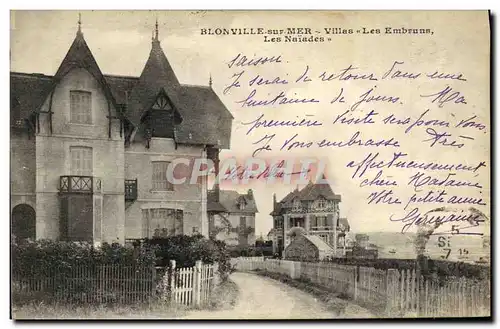 BLONVILLE-sur-MER - Villas « Les Embruns,
Les Naïades »
Saison.
Je serai de retour Dans une
huitaine de jours. Ma
première Visite sera pour Vous.
Je Vous embrasse Très
affectueusement
chère Madame,
Votre petite
Germaine
CARTOREL
5
7 14